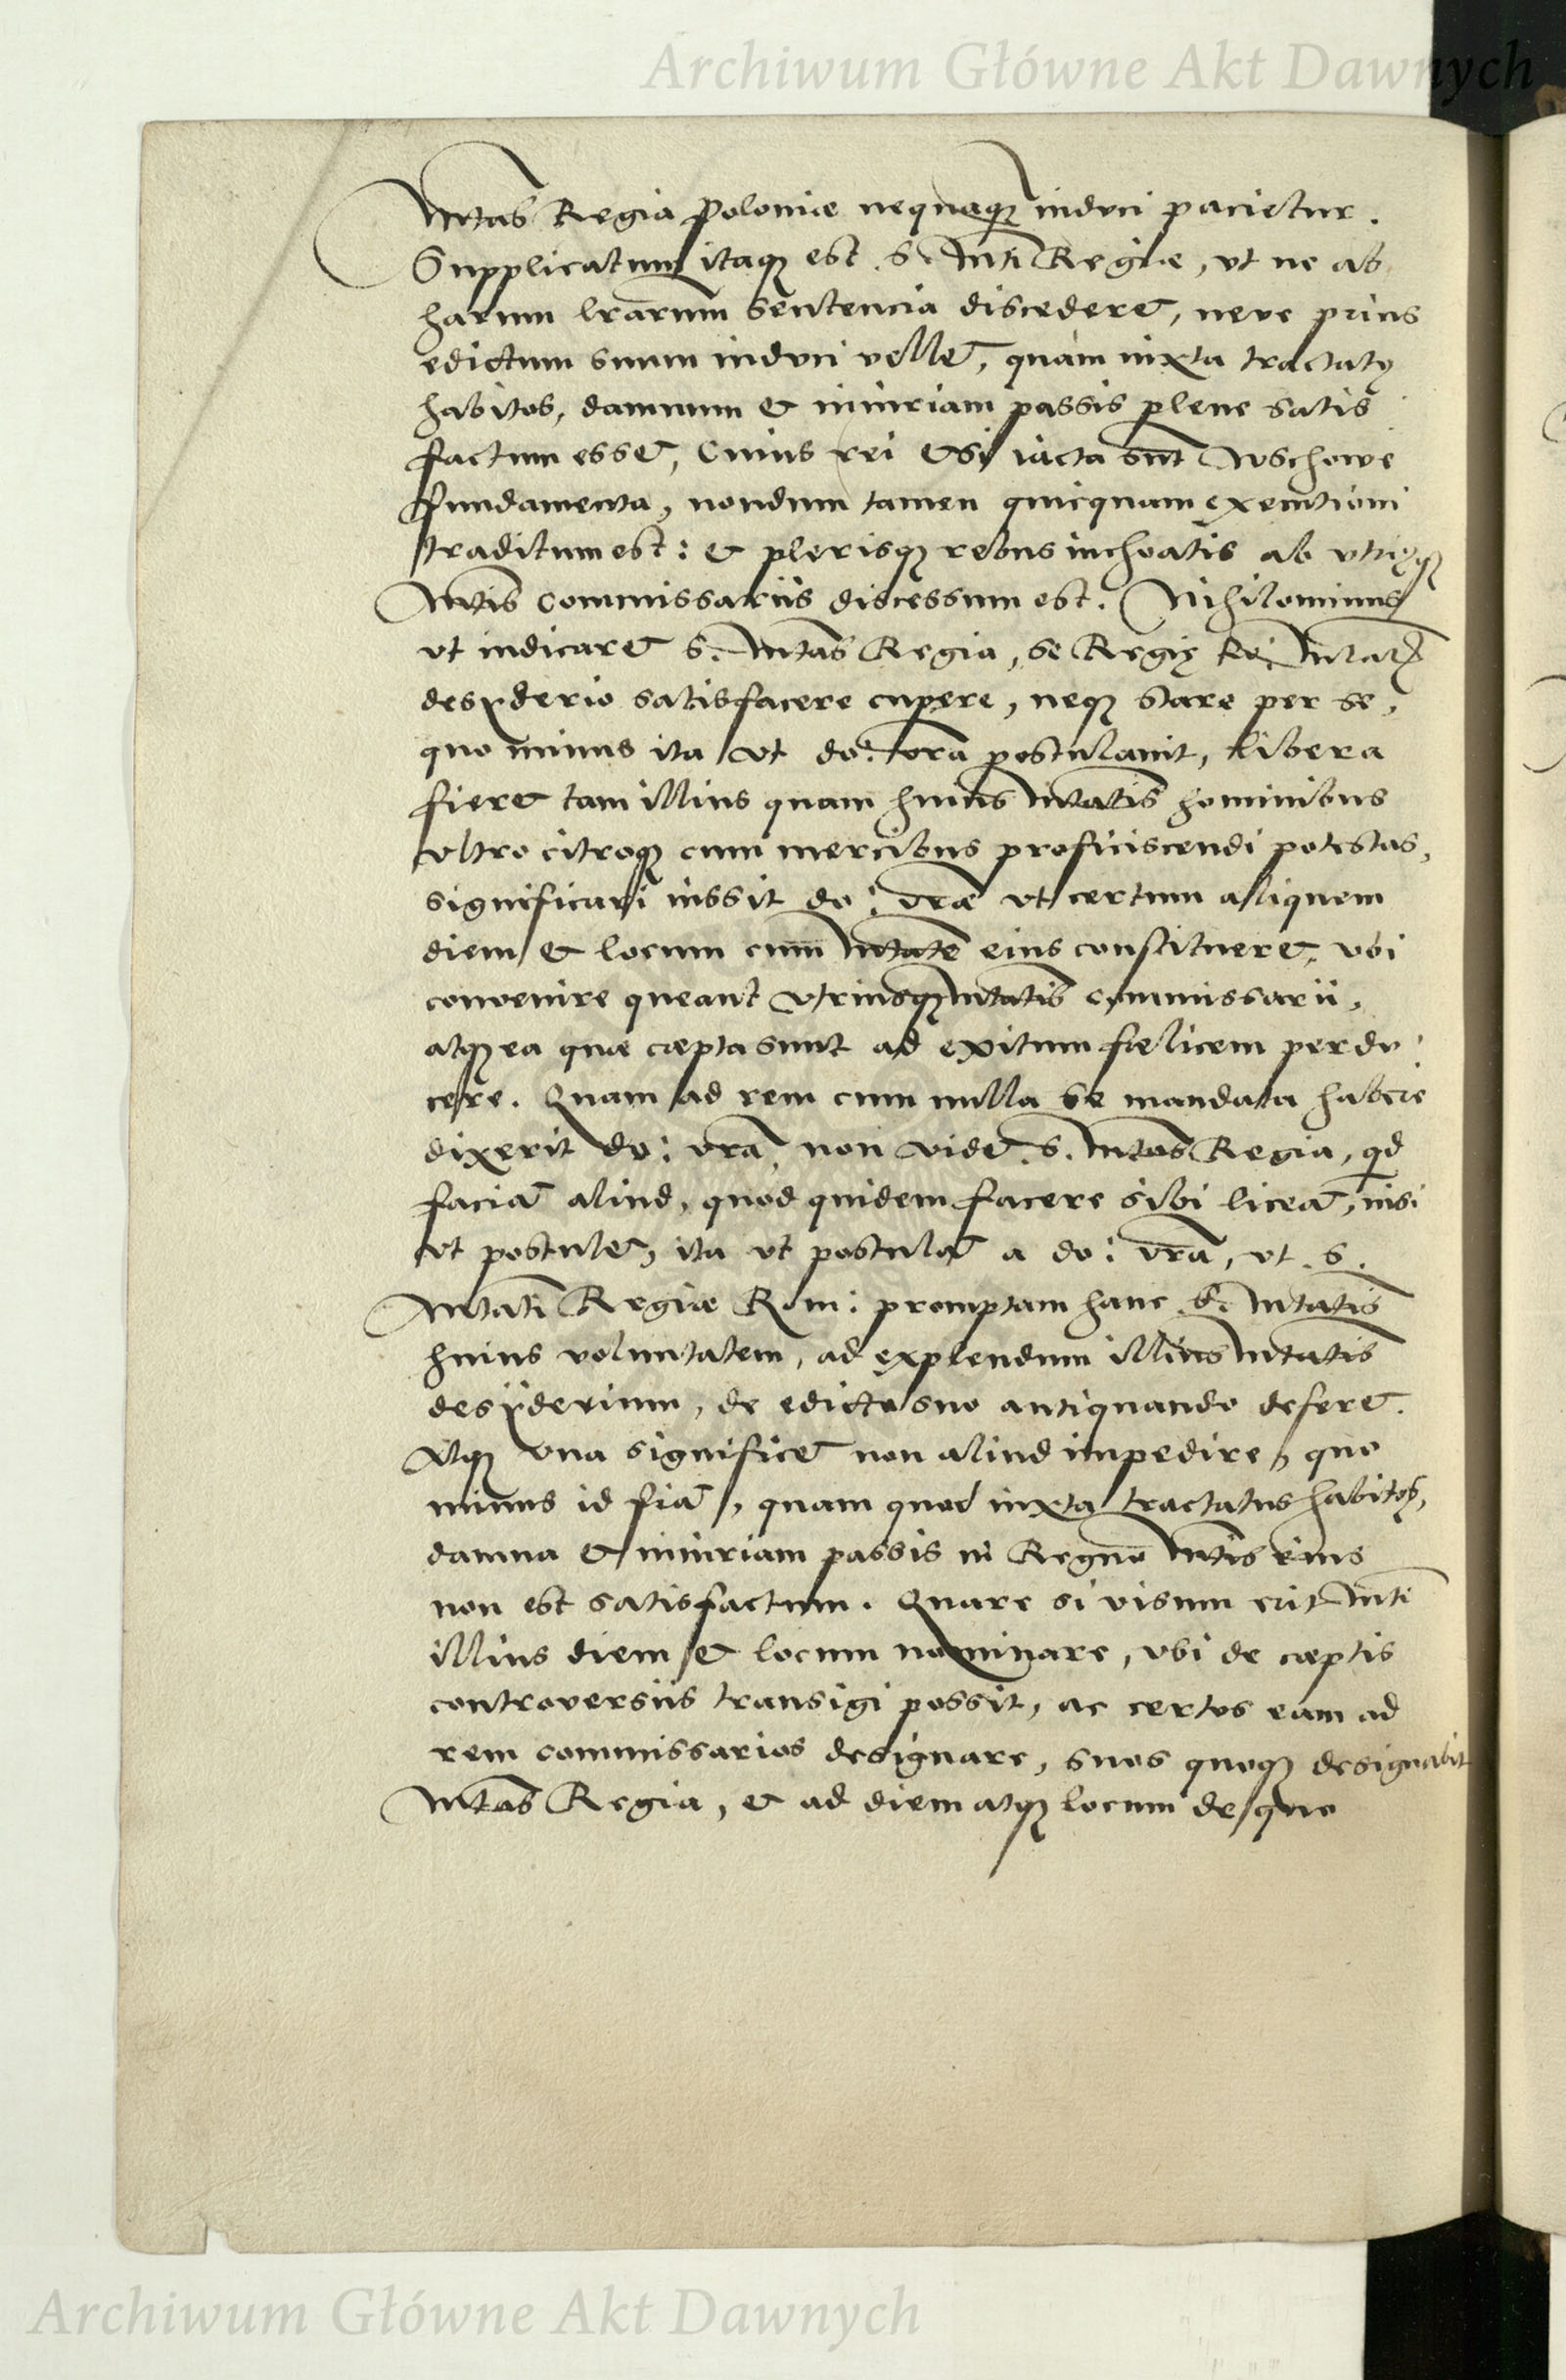 Archiwum Główne Akt Dawnych
Mtas Regia Poloniæ nequaq; induci pacietur.
Supplicatum itaq; est S. Mti Regiæ, vt ne ab
harum lrarum sentencia discederet, neve prius
edictum suum induci vellet, quàm iuxta tractatus
habitos, damnum et iniuriam passis plene satis
factum esset, Cuius rei etsi iacta sunt Wschowe
fundamenta, nondum tamen quicquam executioni
traditum est: et plerisq; rebus inchoatis ab vtriusq;
Mtis Commissariis discessum est. Nihilominus
vt indicaret S. Mtas Regia, se Regiæ Mtatis
desyderio satisfacere cupere, neq; stare per se,
quo minus ita vt do: vra postulauit, libera
fieret tam illius quam huius Mtatis hominibus
vltro citroq; cum mercibus proficiscendi potestas,
significari iussit do: vræ vt certum aliquem
diem et locum cum Mtate eius constitueret, vbi
convenire queant vtriusq; Mtatis commissarii,
atq; ea quæ cæpta sunt ad exitum fælicem perdu
cere. Quam ad rem cum nulla se mandata habere
dixerit do: vra, non videt S. Mtas Regia, qd
faciat aliud, quod quidem facere sibi liceat, nisi
vt postulet, ita vt postulat a do: vra, vt S.
Mtati Regiæ Rom: promptam hanc S. Mtatis
huius voluntatem, ad explendum illius Mtatis
desyderium, de edicto suo antiquando deferet.
Atq; vna significet non aliud impedire, quo
minus id fiat, quam quod iuxta tractatus habitos,
damna et iniuriam passis in Regno Mtis eius
non est satisfactum. Quare si visum erit Mti
illius diem et locum nominare, vbi de cæptis
controversiis transigi possit, ac certos eam ad
rem commissarios designare, suos quoq; designabit
Mtas Regia, et ad diem atq; locum de quo
Archiwum Główne Akt Dawnych